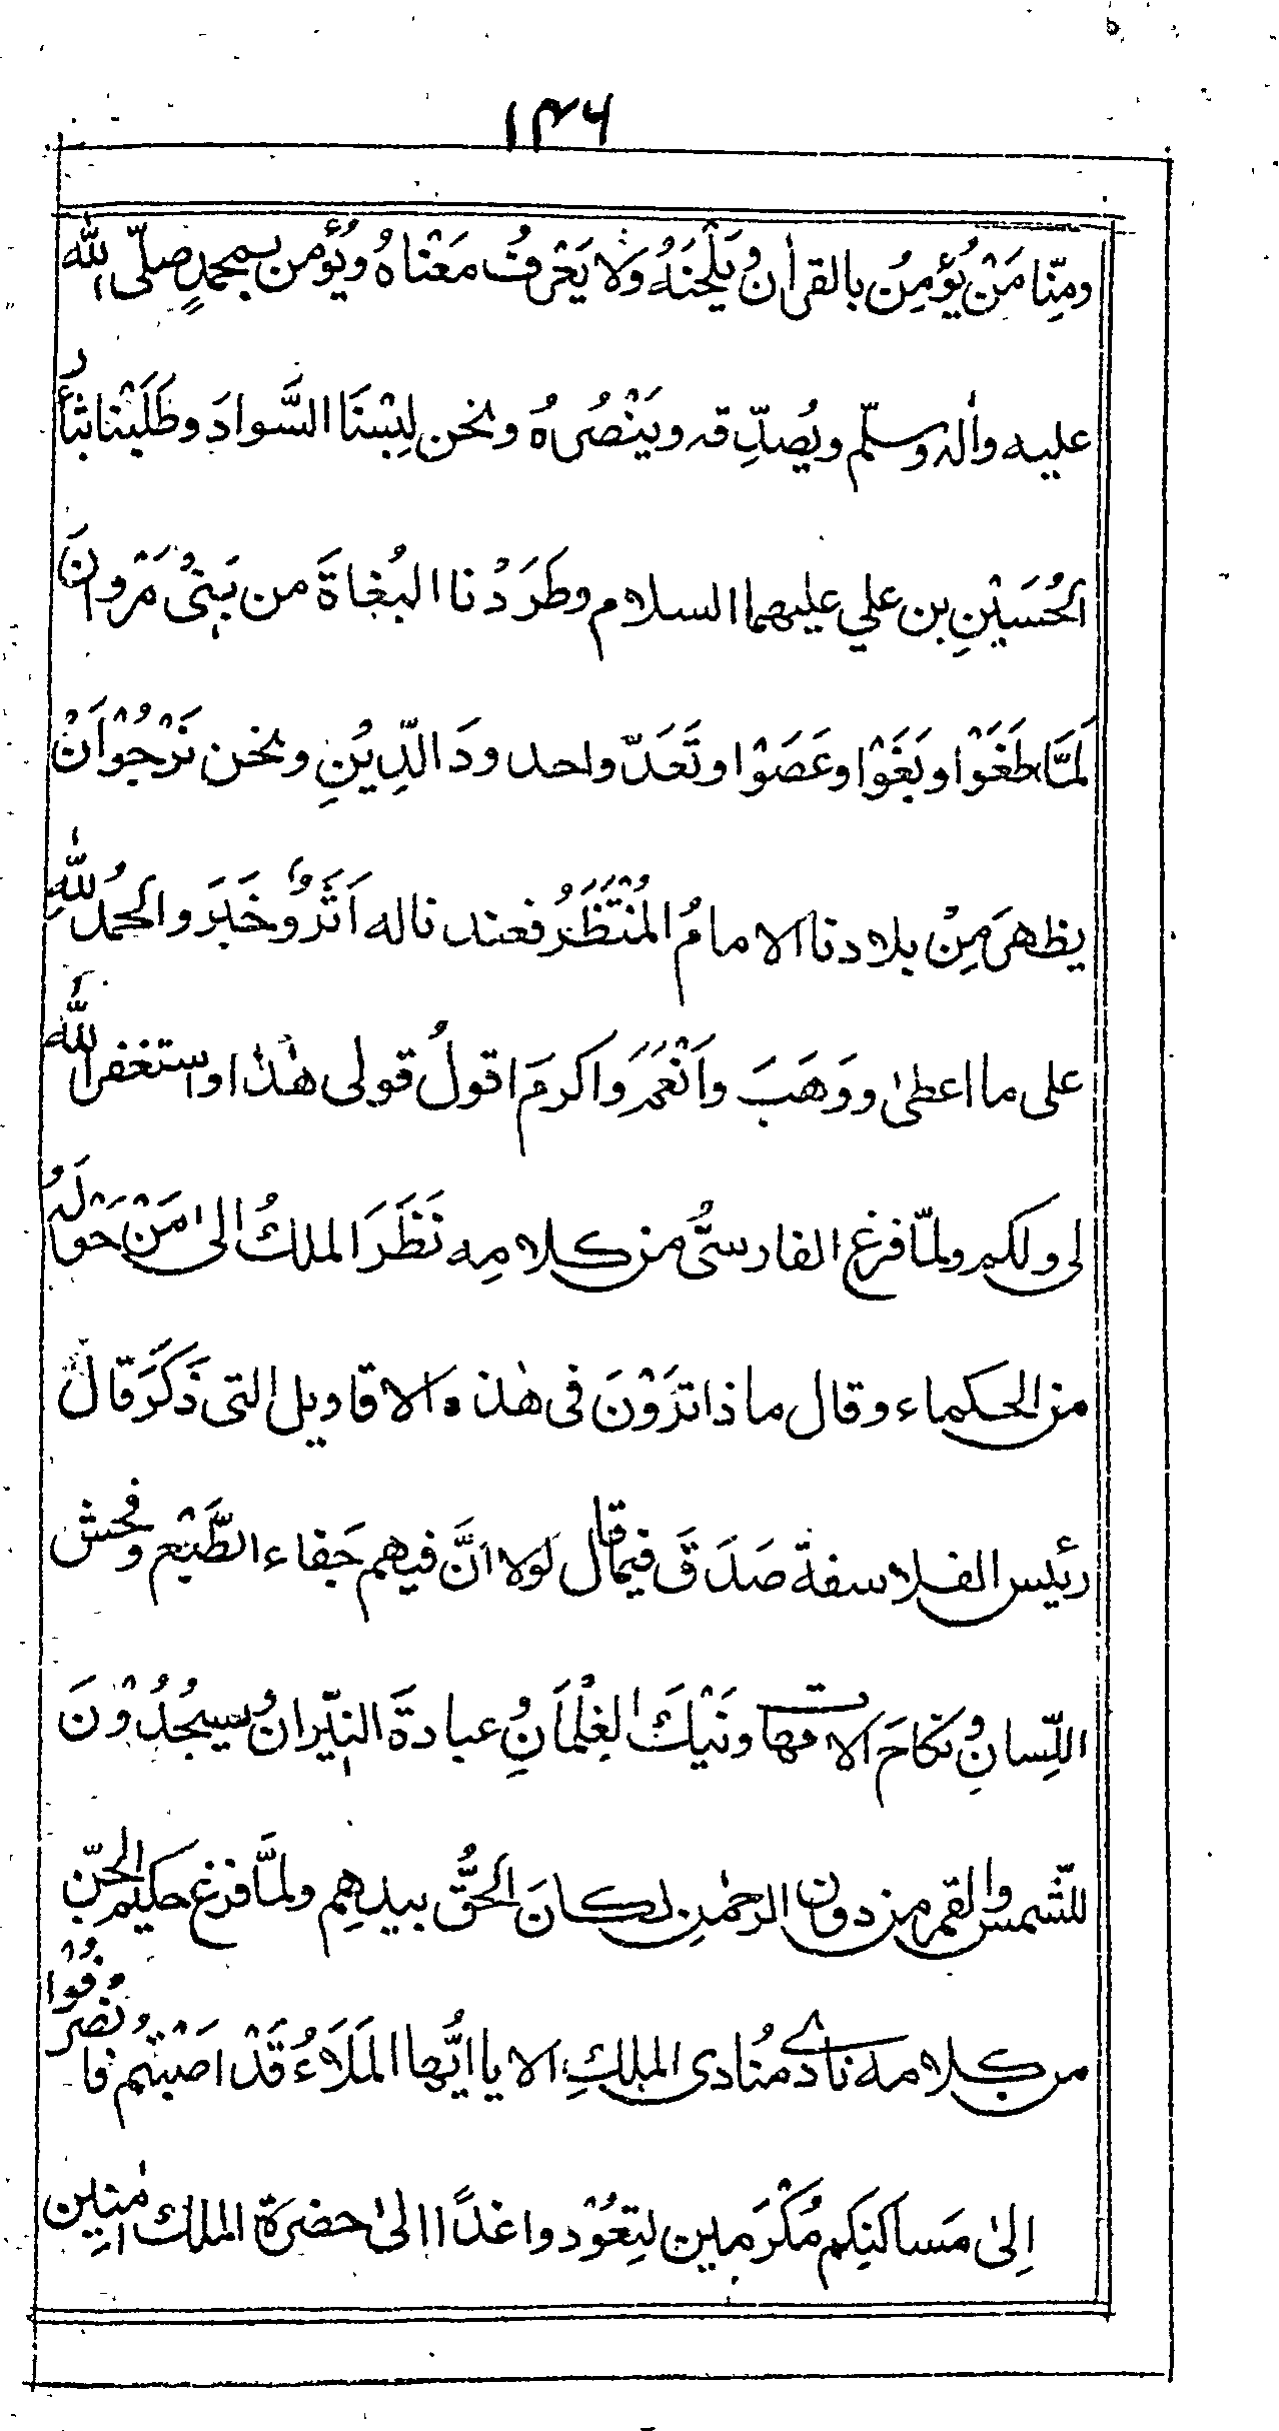 ١٣٦
ومِنّا مَنْ يُؤمِنُ بالقراٰن وُيَلْحَنَهُ ولا يَعْرِفُ مَعْناهُ ويُؤْمن بمحمدٍ صلّى الله
عليه واٰله وسلّم ويُصدِّقه ويَنْصُرُهُ ونحن لِبْسنَا السَّوادَ وطَلَبْنا بثأرِ
الحُسَيْنِ بن علي عليهما السلام وطرَدْنا البُغاةَ من بَنِىْ مَرْوانَ
لَمَّا طَغَوْا وبَغَوْا وعَصَوْا وتَعَدّوا حدودَ الدِّيْنِ ونحن نَرْجُوْ اَنْ
يظهرَ مِنْ بلادنا الامامُ المُنْتَظَرُ فعندناله اَثَرٌ وخَبَر والحمدُ للهِ
على ما اعطىٰ ووَهَبَ واَنْعَمَ واكرمَ اقولُ قولى هٰذا واستغفر اللهَ
لى ولكم ولمّا فرغ الفارسىُّ من كلامِه نَظَرَ الملكُ الىٰ مَنْ حَوْلَهُ
من الحكماء وقال ما ذا ترَوْنَ فى هٰذه الاقاويل التى ذَكَرَ قال
رئيس الفلاسفة صَدَقَ فيما قال لَولا انَّ فيهم جَفاء الطَّبْعِ وفحش
اللِّسانِ ونكاحَ الامّهات ونَيْكَ الغِلْمَانِ وُعبادةَ النِّيران ويسجُدُوْنَ
للشّمس والقمر من دون الرحمٰن لكانَ الحقُّ بيدهِم ولمَّا فرغ حكيم الجنّ
من كلامه نادى مُنادى الملكِ الا يا ايُّها المَلَاءُ قَدْ اَصَبْتُم فانصرفُوْا
اِلىٰ مَساكنِكم مُكْرَمين لِتَعُوْدوا غدًا الىٰ حضرَةِ الملك اٰمنِين